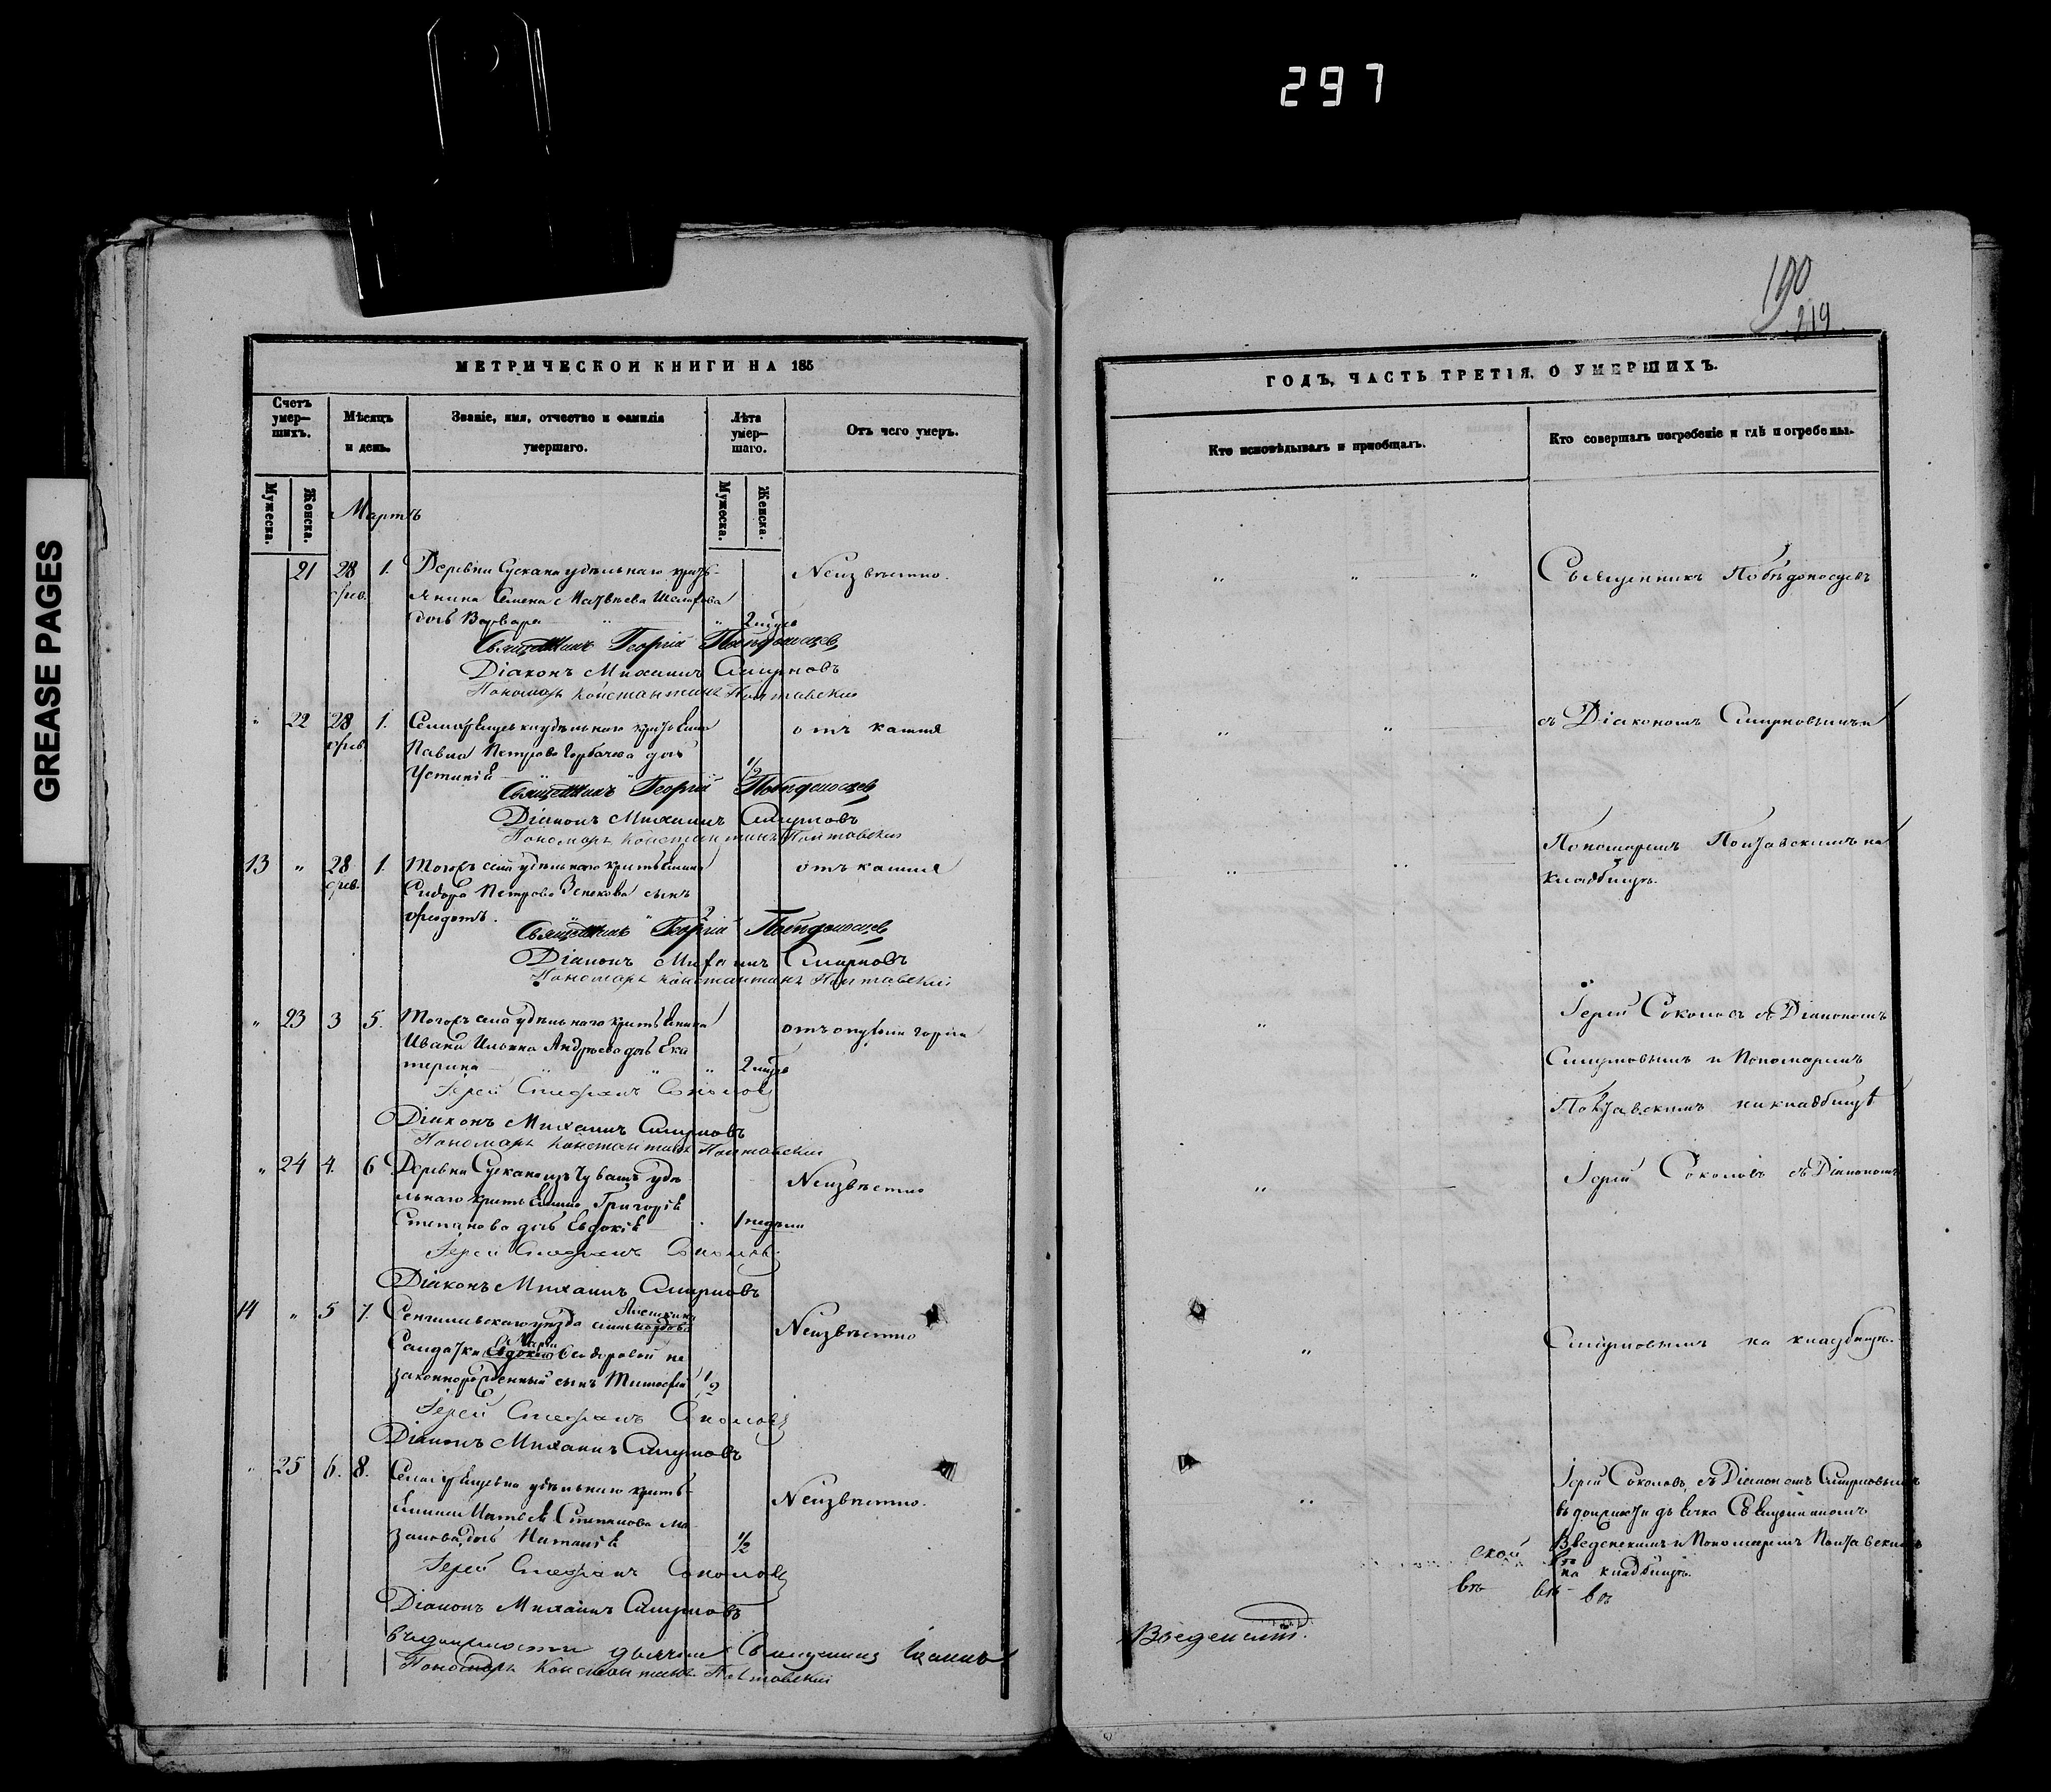 297
GREASE PAGES
190
219.
МЕТРИЧЕСКОЙ КНИГИ НА 185
Счетъ умер-
шихъ.
Мѣсяцъ
и день.
Званіе, имя, отчество и фамилія
умершаго.
Лѣта
умер-
шаго.
Отъ чего умеръ.
Мужеска.
Женска.
Мужеска.
Женска.
Мартъ
21 28 1. Деревни Сускана удѣльнаго кресть-
фев.
янина Семена Матвѣева
дочь Варвара " " 2
Неизвѣстно.
Священникъ Георгій Побѣдоносцев
Діаконъ Михаилъ Смирновъ
Пономарь Константинъ Полтавскій
" 22 28 1. удѣльнаго крестьянина
фев.
Павла Петрова Горбачева дочь
Устинія 1/2
отъ кашля
Священникъ Георгій Побѣдоносцев
Діаконъ Михаилъ Смирновъ
Пономарь Константинъ Полтавскій
13 " 28 1. Тогожъ села удѣльнаго крестьянина
фев.
Сидора Петрова сынъ
Федотъ. " " 2
отъ кашля
Священникъ Георгій Побѣдоносцев
Діаконъ Михаилъ Смирновъ
Пономарь Константинъ Полтавскій
" 23 3 5. Тогожъ села удѣльнаго крестьянина
Ивана Ильина Андреева дочь Ека
терина " " 2
отъ опухоли горла
Іерей Стефанъ Соколов
Діаконъ Михаилъ Смирновъ
Пономарь Константинъ Полтавскій
" 24 4. 6 Деревни Сускана изъ Чувашъ удѣ
льнаго крестьянина Григорія
Степанова дочь Евдокія 1 недѣли
Неизвѣстно
Іерей Стефанъ Соколов
Діаконъ Михаилъ Смирновъ
14 " 5 7. уѣзда села
Солдатки Сидоровой не
законнорожденный сынъ Тимофей 1/2
Неизвѣстно
Іерей Стефанъ Соколов
Діаконъ Михаилъ Смирновъ
" 25 6. 8. удѣльнаго кресть-
янина Матвѣя Степанова Ма
занова дочь Наталія 1/2
Неизвѣстно.
Іерей Стефанъ Соколов
Діаконъ Михаилъ Смирновъ
Пономарь Константинъ Полтавскій
ГОДЪ, ЧАСТЬ ТРЕТІЯ, О УМЕРШИХЪ.
Кто исповѣдывалъ и пріобщалъ.
Кто совершалъ погребеніе и гдѣ погребены.
" " " Священникъ Побѣдоносцевъ
" " съ Діакономъ Смирновымъ и
" " Пономаремъ Полтавскимъ на
кладбищѣ.
" Іерей Соколовъ съ Діакономъ
Смирновымъ и Пономаремъ
Полтавскимъ на кладбищѣ
" Іерей Соколовъ съ Діакономъ
" Смирновымъ на кладбищѣ.
" Іерей Соколовъ, съ Діакономъ Смирновымъ
Введенскимъ и Пономаремъ Полтавскимъ
на кладбищѣ.
ской
въ въ въ